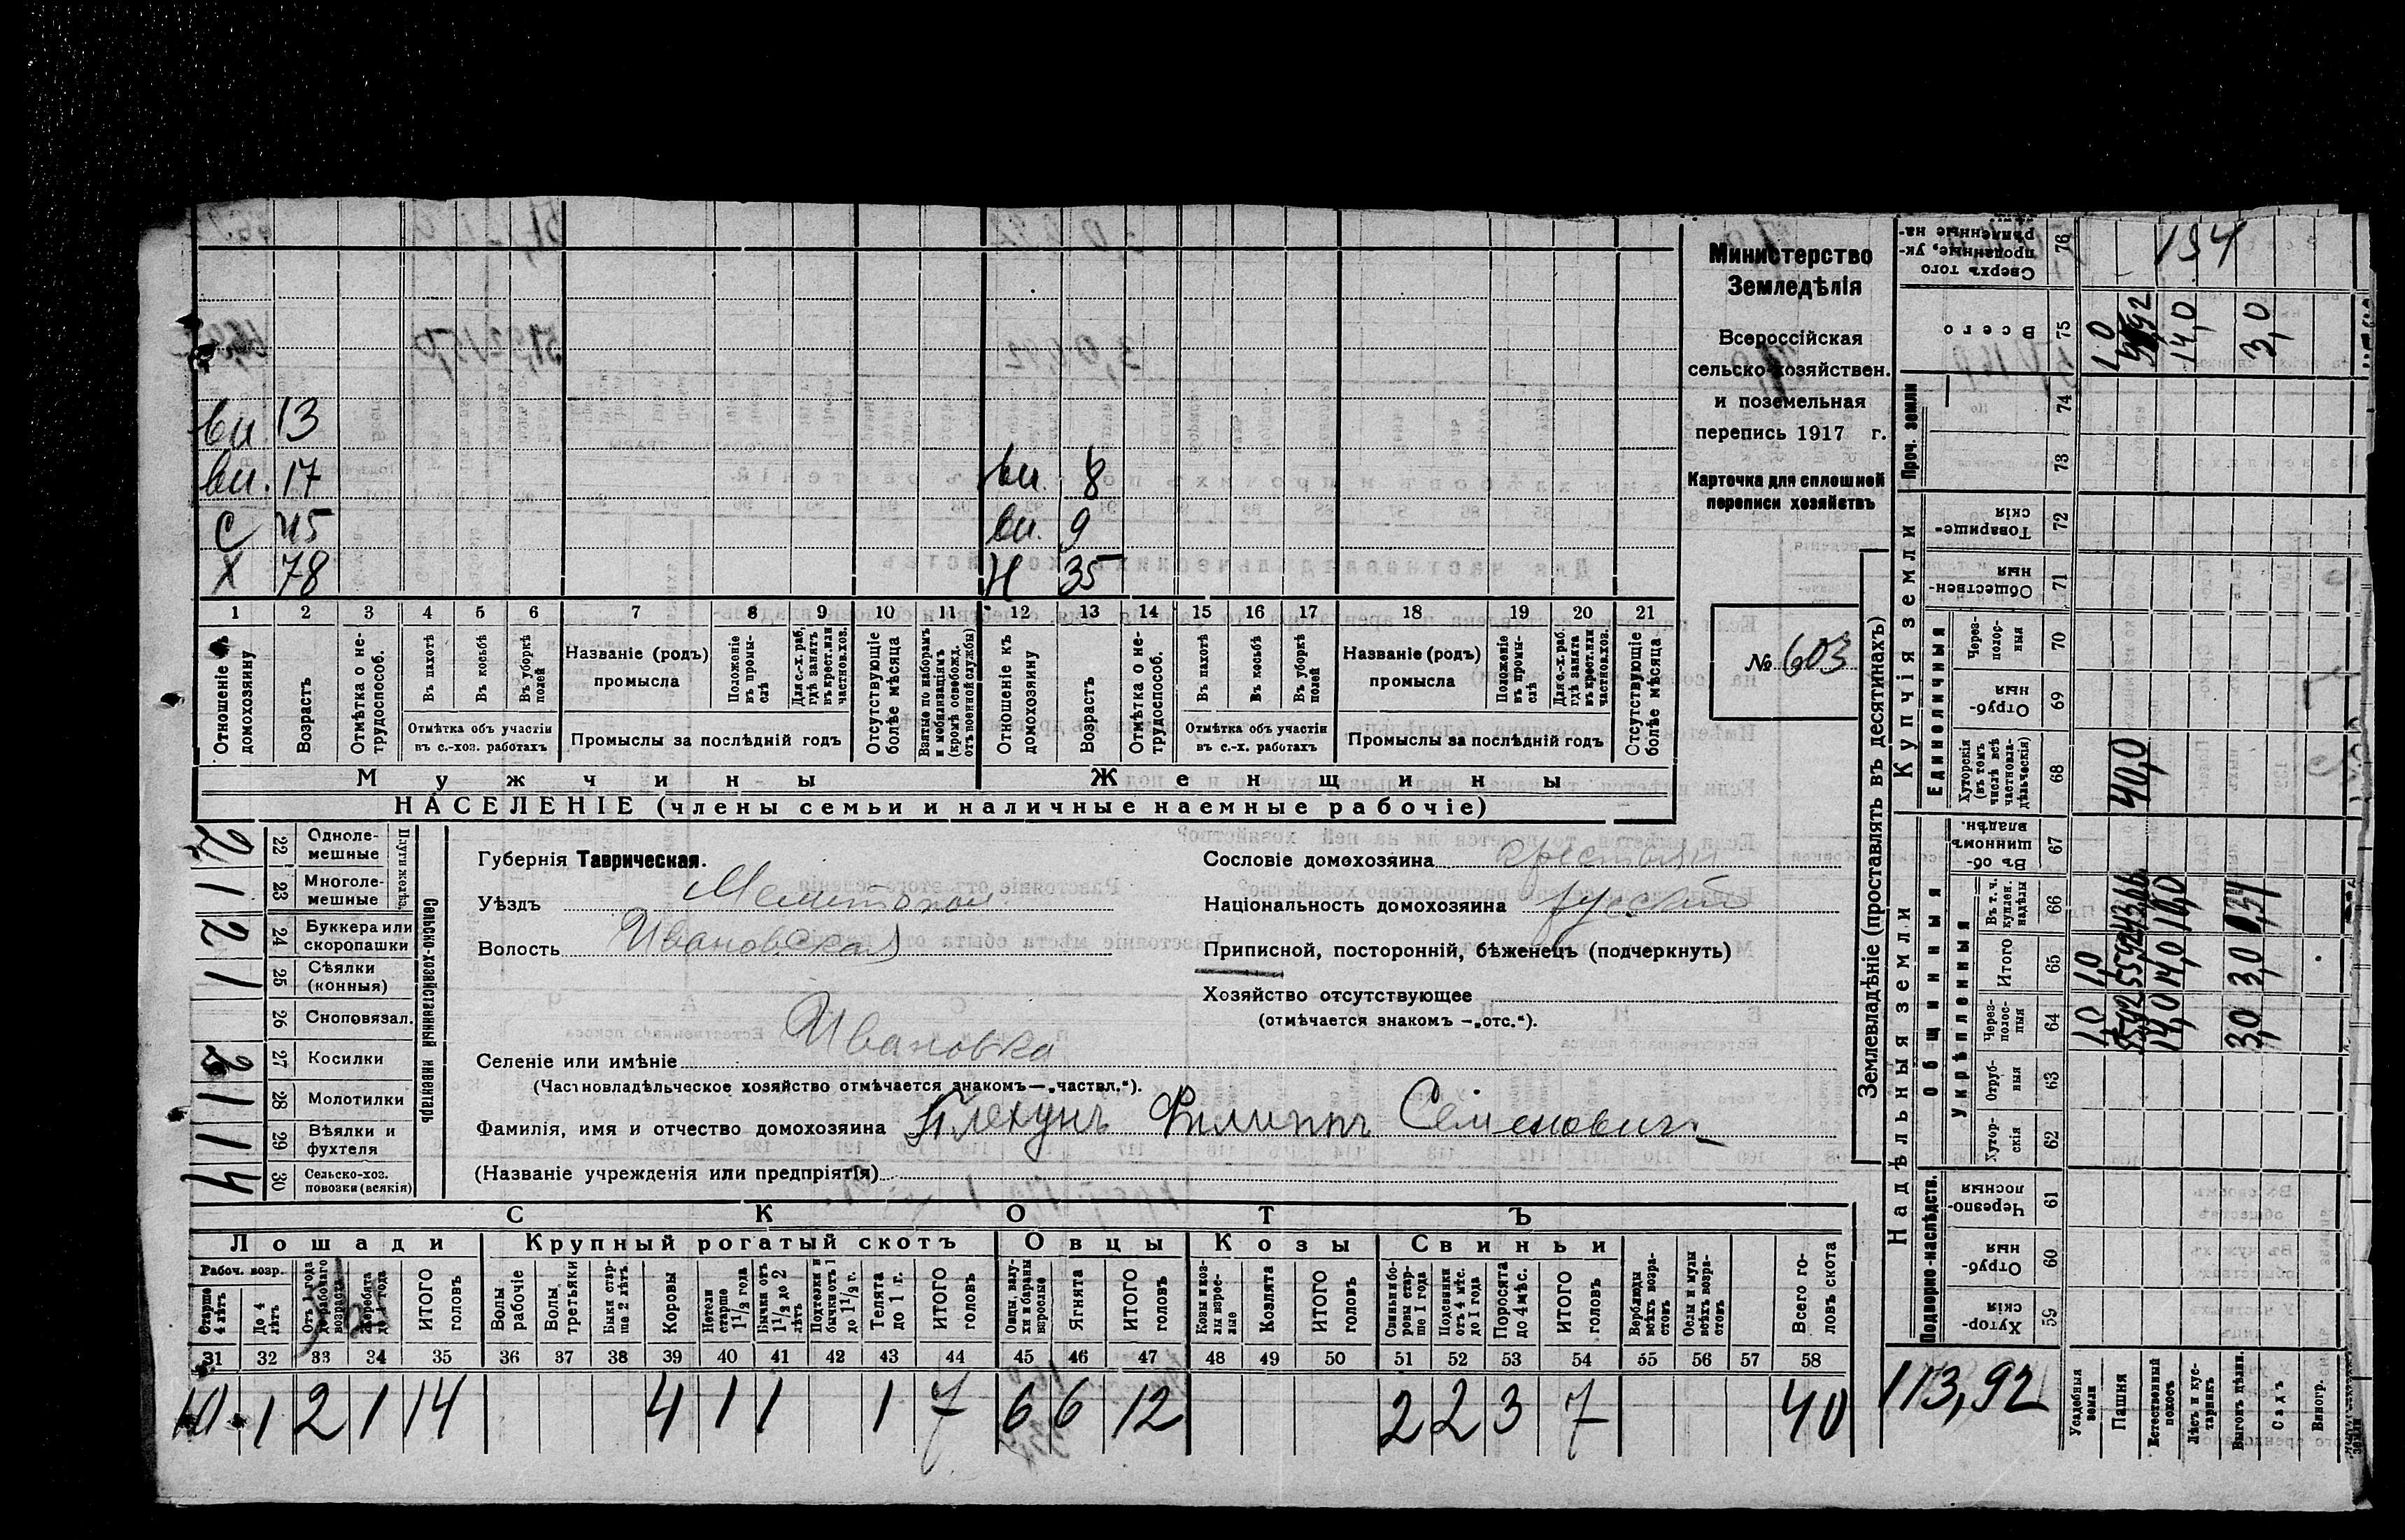 Министерство
Земледѣлія
Всероссійская
сельско-хозяйствен.
и поземельная
перепись 1917 г.
Карточка для сплошной
переписи хозяйствъ
№ 603
вн 13
вн. 17 вн. 8
С 45 вн. 9
Х 78 Н 35
1 2 3 4 5 6 7 8 9 10 11 12 13 14 15 16 17 18 19 20 21
Отношеніе къ домохозяину
Возрастъ
Отмѣтка о нетрудоспособ.
Въ пахотѣ
Въ косьбѣ
Въ уборкѣ полей
Отмѣтка объ участіи въ с.-хоз. работахъ
Названіе (родъ) промысла
Положеніе въ промыслѣ
Для с.-х. раб. гдѣ занятъ въ крест. или частнов. хоз.
Промыслы за послѣдній годъ
Отсутствующіе болѣе мѣсяца
Взятые по наборамъ и мобилизаціямъ (кромѣ освобожд. отъ военной службы)
Отношеніе къ домохозяину
Возрастъ
Отмѣтка о нетрудоспособ.
Въ пахотѣ
Въ косьбѣ
Въ уборкѣ полей
Отмѣтка объ участіи въ с.-х. работахъ
Названіе (родъ) промысла
Положеніе въ промыслѣ
Для с.-х. раб. гдѣ занята въ крест. или частнов. хоз.
Промыслы за послѣдній годъ
Отсутствующіе болѣе мѣсяца
Мужчины Женщины
НАСЕЛЕНІЕ (члены семьи и наличные наемные рабочіе)
Сельско-хозяйственный инвентарь
Плуги желѣз.
22 Одноле-мешные 2
23 Многоле-мешные 1
24 Буккера или скоропашки 2
25 Сѣялки (конныя) 1
26 Сноповязал.
27 Косилки
28 Молотилки 1
29 Вѣялки и фухтеля 1
30 Сельско-хоз. повозки (всякія) 4
Губернія Таврическая.
Уѣздъ Мелитопол.
Волость Ивановская
Селеніе или имѣніе Ивановка
(Частновладѣльческое хозяйство отмѣчается знакомъ—„частвл.“).
Фамилія, имя и отчество домохозяина Плехунъ Филиппъ Семеновичъ
(Названіе учрежденія или предпріятія)
Сословіе домохозяина крестьян
Національность домохозяина русский
Приписной, посторонній, бѣженецъ (подчеркнуть)
Хозяйство отсутствующее
(отмѣчается знакомъ —„отс.“).
СКОТЪ
Лошади Крупный рогатый скотъ Овцы Козы Свиньи
Рабоч. возр.
Старше 4 лѣтъ
До 4 лѣтъ
Отъ 1 года до рабочаго возраста
Жеребята до 1 года
ИТОГО головъ
Волы рабочіе
Волы третьяки
Быки старше 2 лѣтъ
Коровы
Нетели старше 1½ года
Бычки отъ 1½ до 2 лѣтъ
Подтелки и бычки отъ 1 до 1½ г.
Телята до 1 г.
ИТОГО головъ
Овцы, валухи и бараны взрослые
Ягнята
ИТОГО головъ
Козы и козлы взрослые
Козлята
ИТОГО головъ
Свиньи и боровы старше 1 года
Подсвинки отъ 4 мѣс. до 1 года
Поросята до 4 мѣс.
ИТОГО головъ
Верблюды всѣхъ возрастовъ
Ослы и мулы всѣхъ возрастовъ
Всего головъ скота
31 32 33 34 35 36 37 38 39 40 41 42 43 44 45 46 47 48 49 50 51 52 53 54 55 56 57 58
10 1 2 1 14 4 1 1 1 7 6 6 12 2 2 3 7 40
Землевладѣніе (проставлять въ десятинахъ)
Сверхъ того проданные, укрѣпленные на-
76 154
Всего 75 1,0 92 14,0 3,0
Проч. земли
74
73
Купчія земли
Товарище-скія 72
Обществен-ныя 71
Единоличныя
Черезполос-ныя 70
Отруб-ныя 69
Хуторскія (въ томъ числѣ всѣ частновладѣльческія) 68 40,0
Надѣльныя земли
Общинныя
Въ общинномъ владѣн. 67
Укрѣпленныя
Въ т. ч. куплен. надѣлы 66
Итого 65 1,0 55,92 14,0 3,0
Черезполос-ныя 64 1,0 14,0 3,0
Отруб-ныя 63
Хутор-скія 62
Подворно-наслѣдств.
Черезпо-лосныя 61
Отруб-ныя 60
Хутор-скія 59
113,92
Усадебныя земли
Пашня
Естественный покосъ
Лѣсъ и кустарникъ
Выгонъ цѣлин.
Садъ
Виногр.